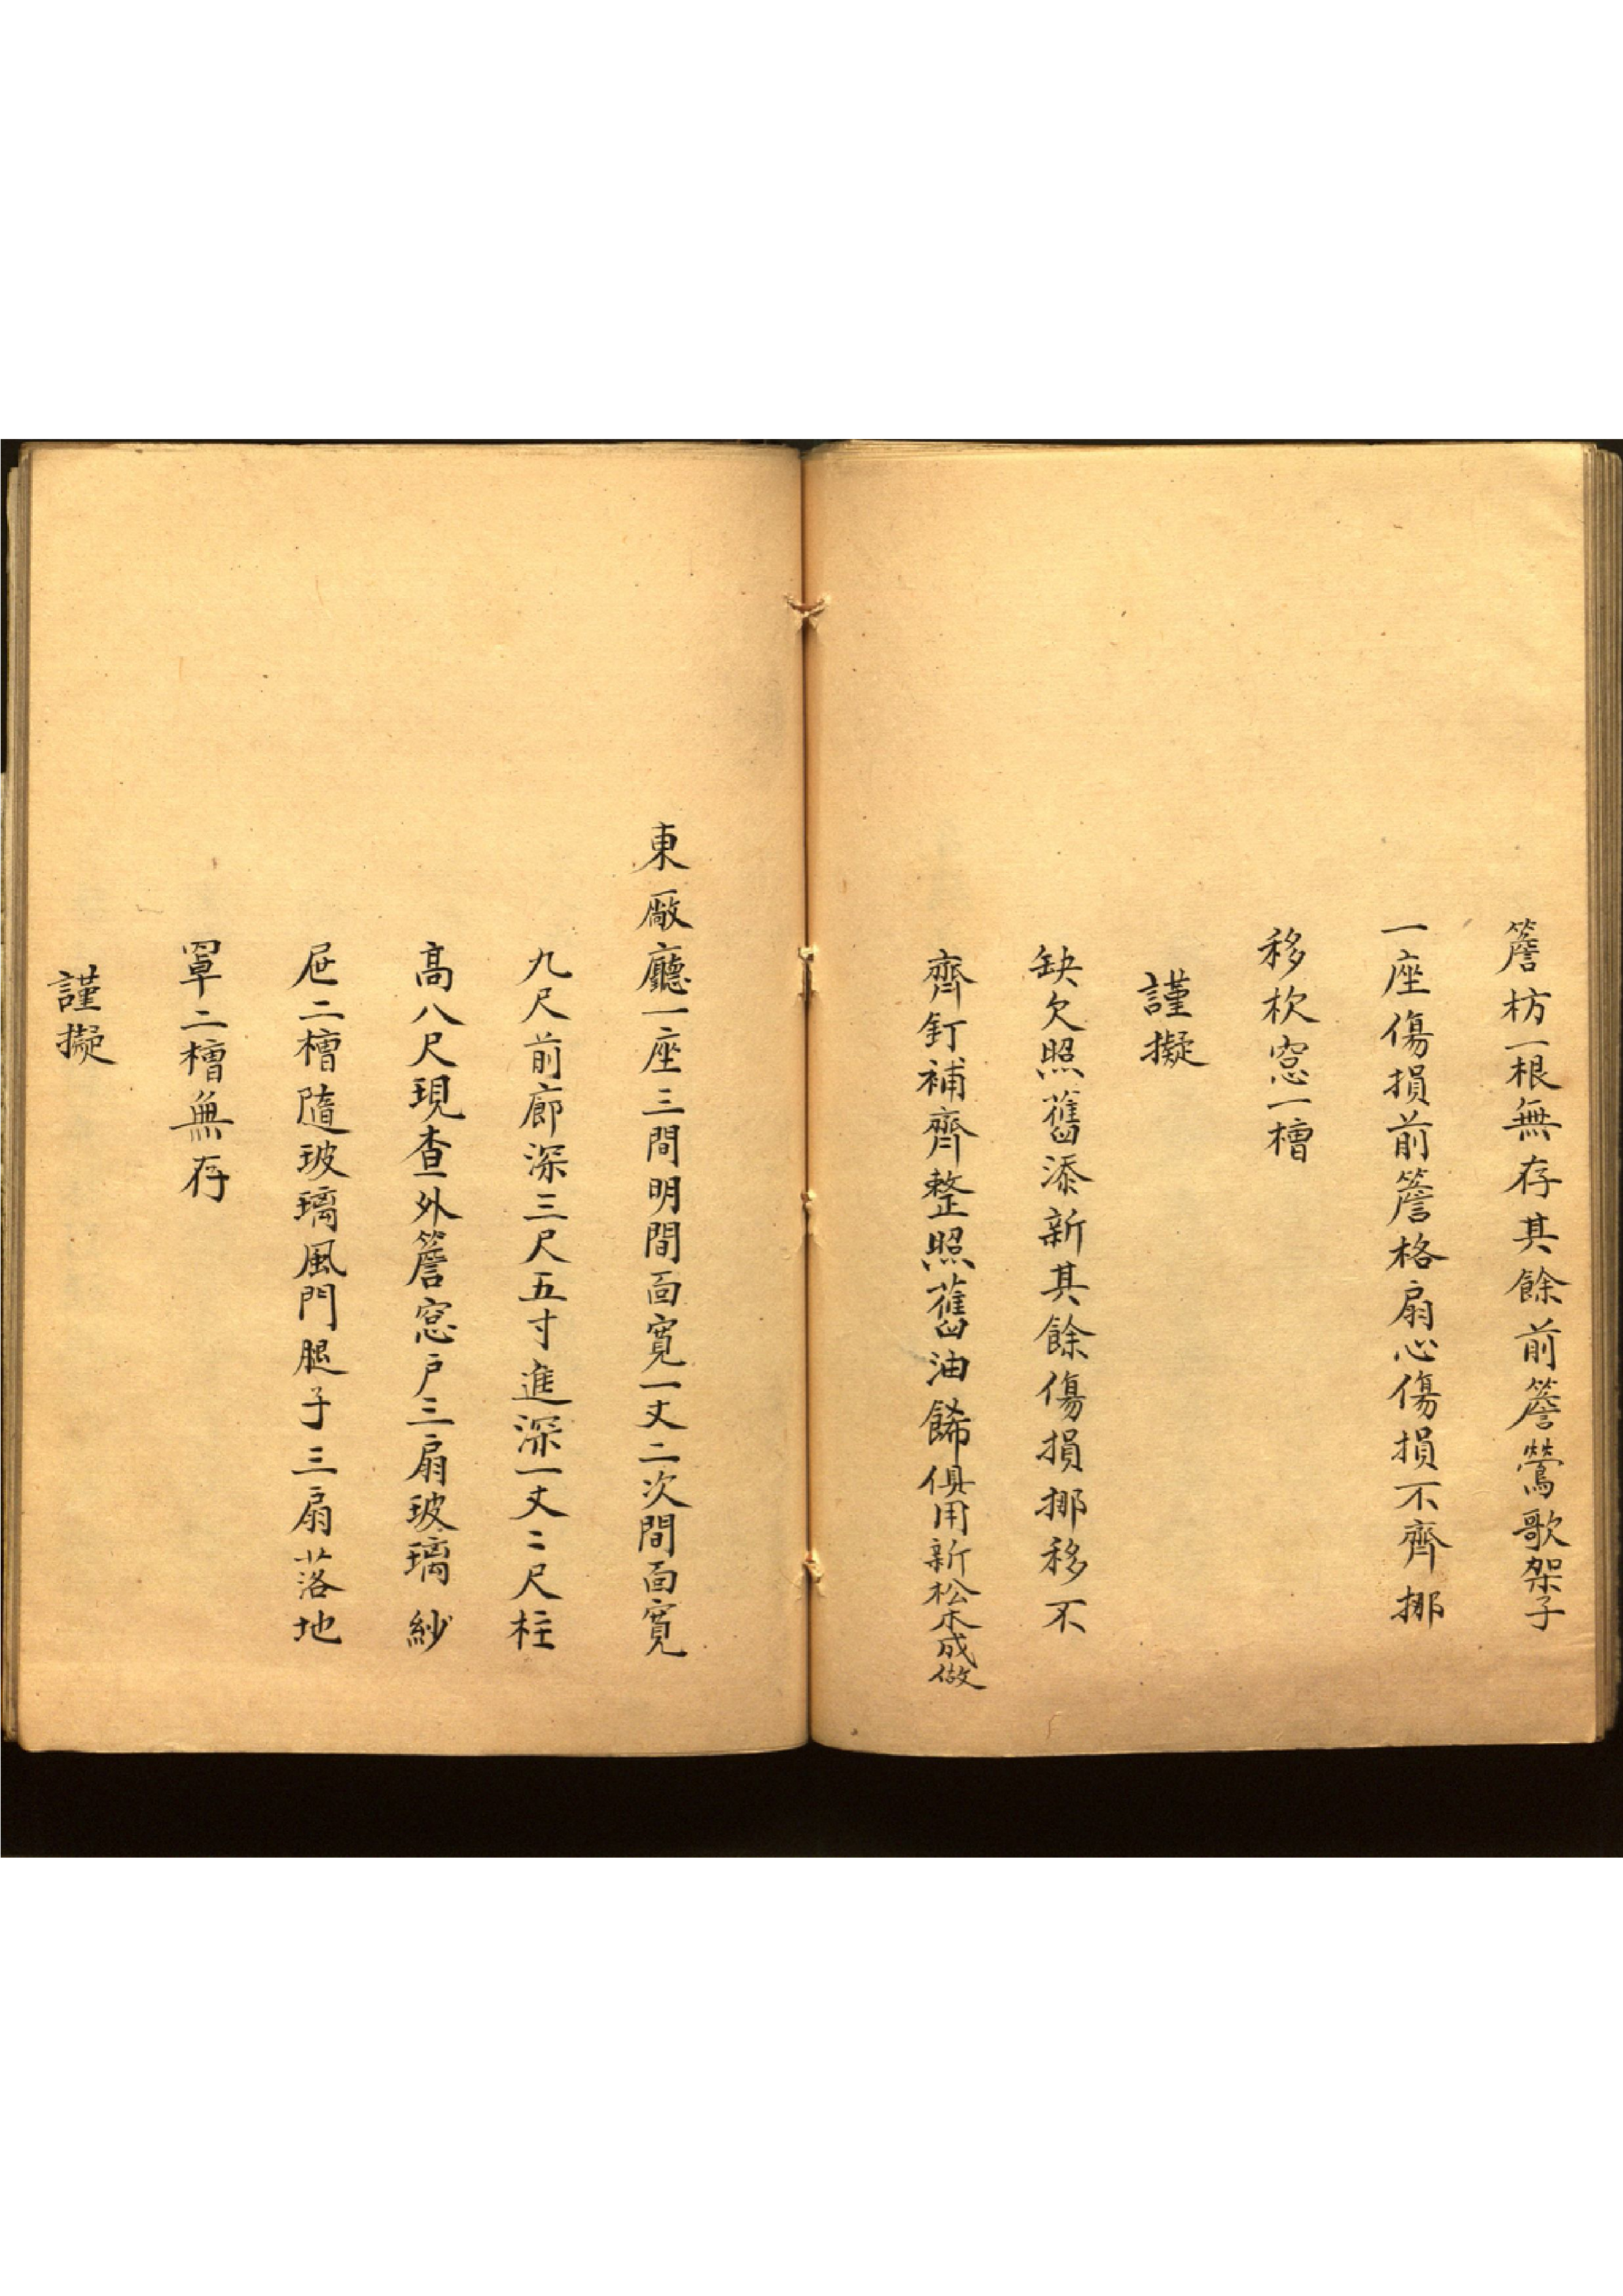 簷枋一根無存其餘前簷鶯歌架子
一座傷損前簷格扇心傷損不齊挪
移杴窓一槽
謹擬
缺欠照舊添新其餘傷損挪移不
齊釘補齊整照舊油餙俱用新松木成做
東厰廳一座三間明間面寛一丈二次間面寛
九尺前廊深三尺五寸進深一丈二尺柱
高八尺現查外簷窓戶三扇玻璃紗
屜二槽隨玻璃風門腿子三扇落地
罩二槽無存
謹擬